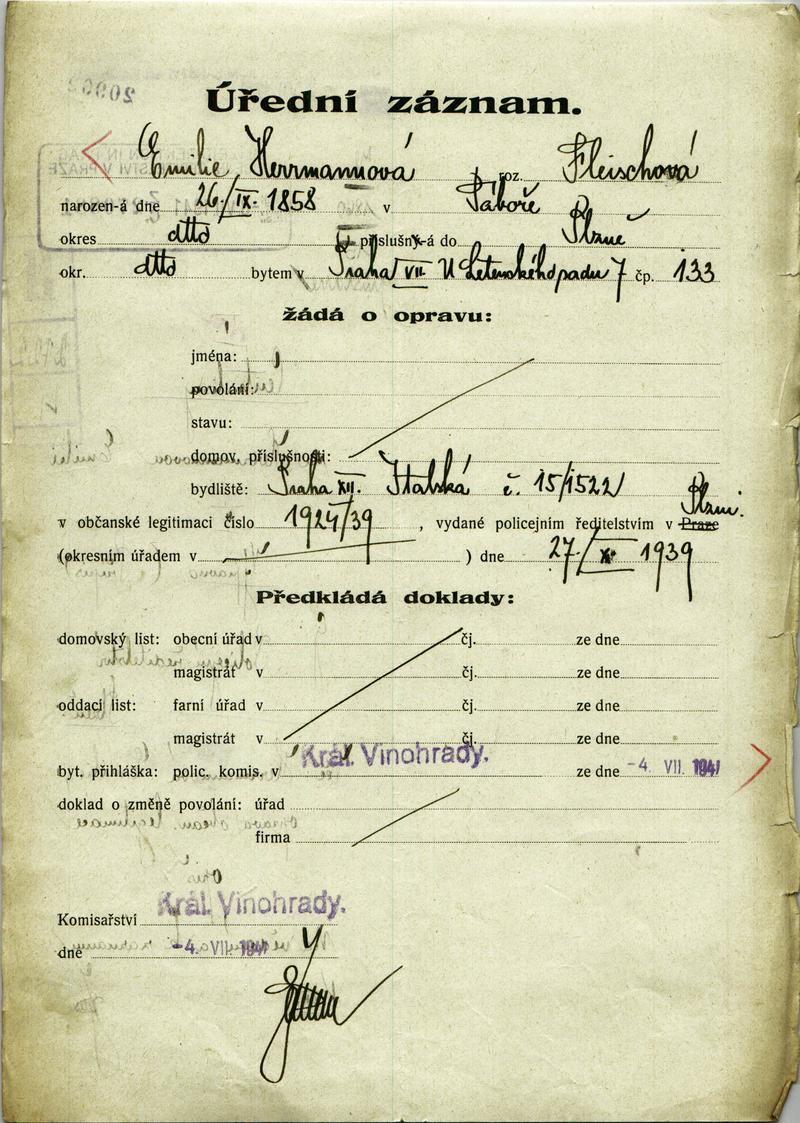 Úřední záznam.
Emilie Herrmannová roz. Fleischová
narozen-á dne 26./IX. 1858 v Táboře
okres dtto příslušný-á do Plzně
okr. dtto bytem v Praha VII. U Letenského sadu 7 čp. 133
žádá o opravu:
jména:
povolání:
stavu:
domov. příslušnosti:
bydliště: Praha XII. Italská č. 15/1522
v občanské legitimaci číslo 1924/39, vydané policejním ředitelstvím v Praze Plzni.
(okresním úřadem v ) dne 27/X. 1939
Předkládá doklady:
domovský list: obecní úřad v čj. ze dne
magistrát v čj. ze dne
oddací list: farní úřad v čj. ze dne
magistrát v čj. ze dne
byt. přihláška: polic. komis. v Král. Vinohrady. ze dne -4. VII. 1941
doklad o změně povolání: úřad
firma
Komisařství Král. Vinohrady.
dne -4. VII. 1941